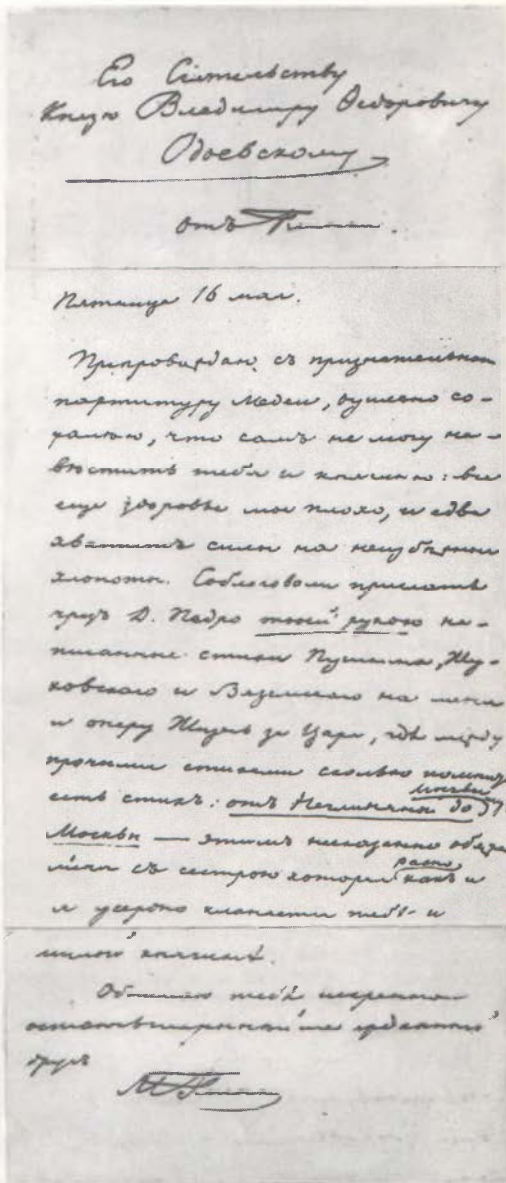 Его Сіятельству
Князю Владиміру Ѳедоровичу
Одоевскому
отъ Глинки.
Пятница 16 мая.
Препровождаю съ признательностію
партитуру Медеи, душевно со-
жалѣю, что самъ не могу на-
вѣстить тебя и княгиню: все
еще здоровье мое плохо, и едва
хватитъ силъ на неизбѣжныя
хлопоты. Соблаговоли прислать
чрезъ Д. Педро твоей рукою на-
писанные стихи Пушкина, Жу-
ковскаго и Вяземскаго на меня
и оперу Жизнь за Царя, гдѣ между
прочими стихами сколько помнится
есть стихъ: отъ Неглинной до
Москвы — этимъ несказанно обяжешь
меня съ сестрою которая равно какъ и
я усердно кланяется тебѣ и
милой княгинѣ.
Обнимаю тебя искренно
преданный
другъ
МГлинка